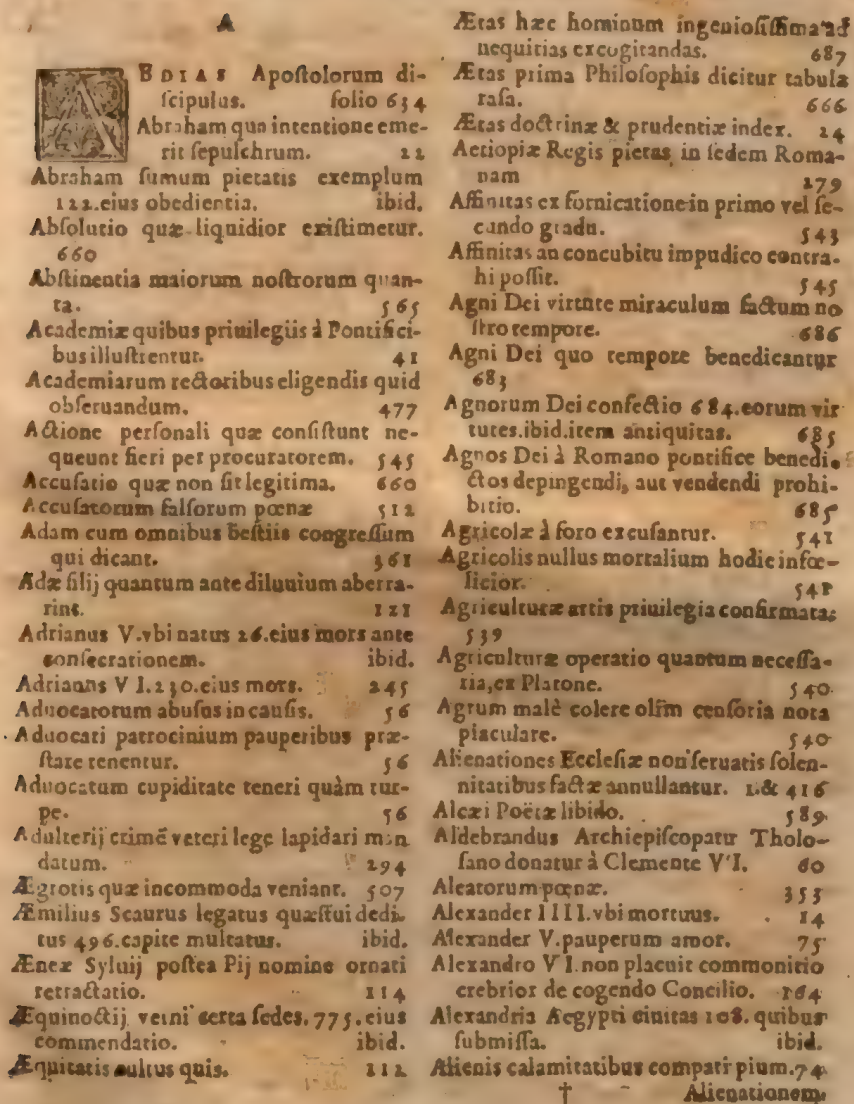 A
ABDIAS Apoſtolorum di-
ſcipulus. folio 634
Abraham qua intentione eme-
rit ſepulchrum. 22
Abraham ſumum pietatis exemplum
122.eius obedientia. ibid.
Abſolutio quæ liquidior exiſtimetur.
660
Abſtinentia maiorum noſtrorum quan-
ta. 565
Academiæ quibus priuilegiis à Pontifici-
bus illuſtrentur. 41
Academiarum rectoribus eligendis quid
obſeruandum. 477
Actione perſonali quæ conſiſtunt ne-
queunt fieri per procuratorem. 545
Accuſatio quæ non ſit legitima. 660
Accuſatorum falſorum pœnæ 512
Adam cum omnibus beſtiis congreſſum
qui dicant. 361
Adæ filij quantum ante diluuium aberra-
rint. 121
Adrianus V.vbi natus 26.eius mors ante
conſecrationem. ibid.
Adrianus VI.230.eius mors. 245
Aduocatorum abuſus in cauſis. 56
Aduocati patrocinium pauperibus præ-
ſtare tenentur. 56
Aduocatum cupiditate teneri quàm tur-
pe. 56
Adulterij crimē veteri lege lapidari man
datum. 294
Ægrotis quæ incommoda veniant. 507
Æmilius Scaurus legatus quæſtui dedi-
tus 496.capite multatus. ibid.
Æneæ Syluij poſtea Pij nomine ornati
retractatio. 114
Æquinoctij verni certa ſedes.775.eius
commendatio. ibid.
Æquitatis cultus quis. 112
Ætas hæc hominum ingenioſiſſima ad
nequitias excogitandas. 687
Ætas prima Philoſophis dicitur tabula
raſa. 666
Ætas doctrinæ & prudentiæ index. 24
Aetiopiæ Regis pietas in ſedem Roma-
nam 179
Affinitas ex fornicatione in primo vel ſe-
cundo gradu. 543
Affinitas an concubitu impudico contra-
hi poſſit. 545
Agni Dei virtute miraculum factum no
ſtro tempore. 686
Agni Dei quo tempore benedicantur
683
Agnorum Dei confectio 684.eorum vir
tutes.ibid.item antiquitas. 685
Agnos Dei à Romano pontifice benedi-
ctos depingendi, aut vendendi prohi-
bitio. 685
Agricolæ à foro excuſantur. 541
Agricolis nullus mortalium hodie infœ-
licior. 541
Agriculturæ artis priuilegia confirmata.
539
Agriculturæ operatio quantum neceſſa-
ria,ex Platone. 540
Agrum malè colere olim cenſoria nota
piaculare. 540
Alienationes Eccleſiæ non ſeruatis ſolen-
nitatibus factæ annullantur. 1.& 416
Alcæi Poëtæ libido. 589
Aldebrandus Archiepiſcopatu Tholo-
ſano donatur à Clemente VI. 60
Aleatorum pœnæ. 353
Alexander IIII.vbi mortuus. 14
Alexander V.pauperum amor. 75
Alexandro VI.non placuit commonitio
crebrior de cogendo Concilio. 264
Alexandria Aegypti ciuitas 108.quibus
ſubmiſſa. ibid.
Alienis calamitatibus compati pium.74
† Alienationem